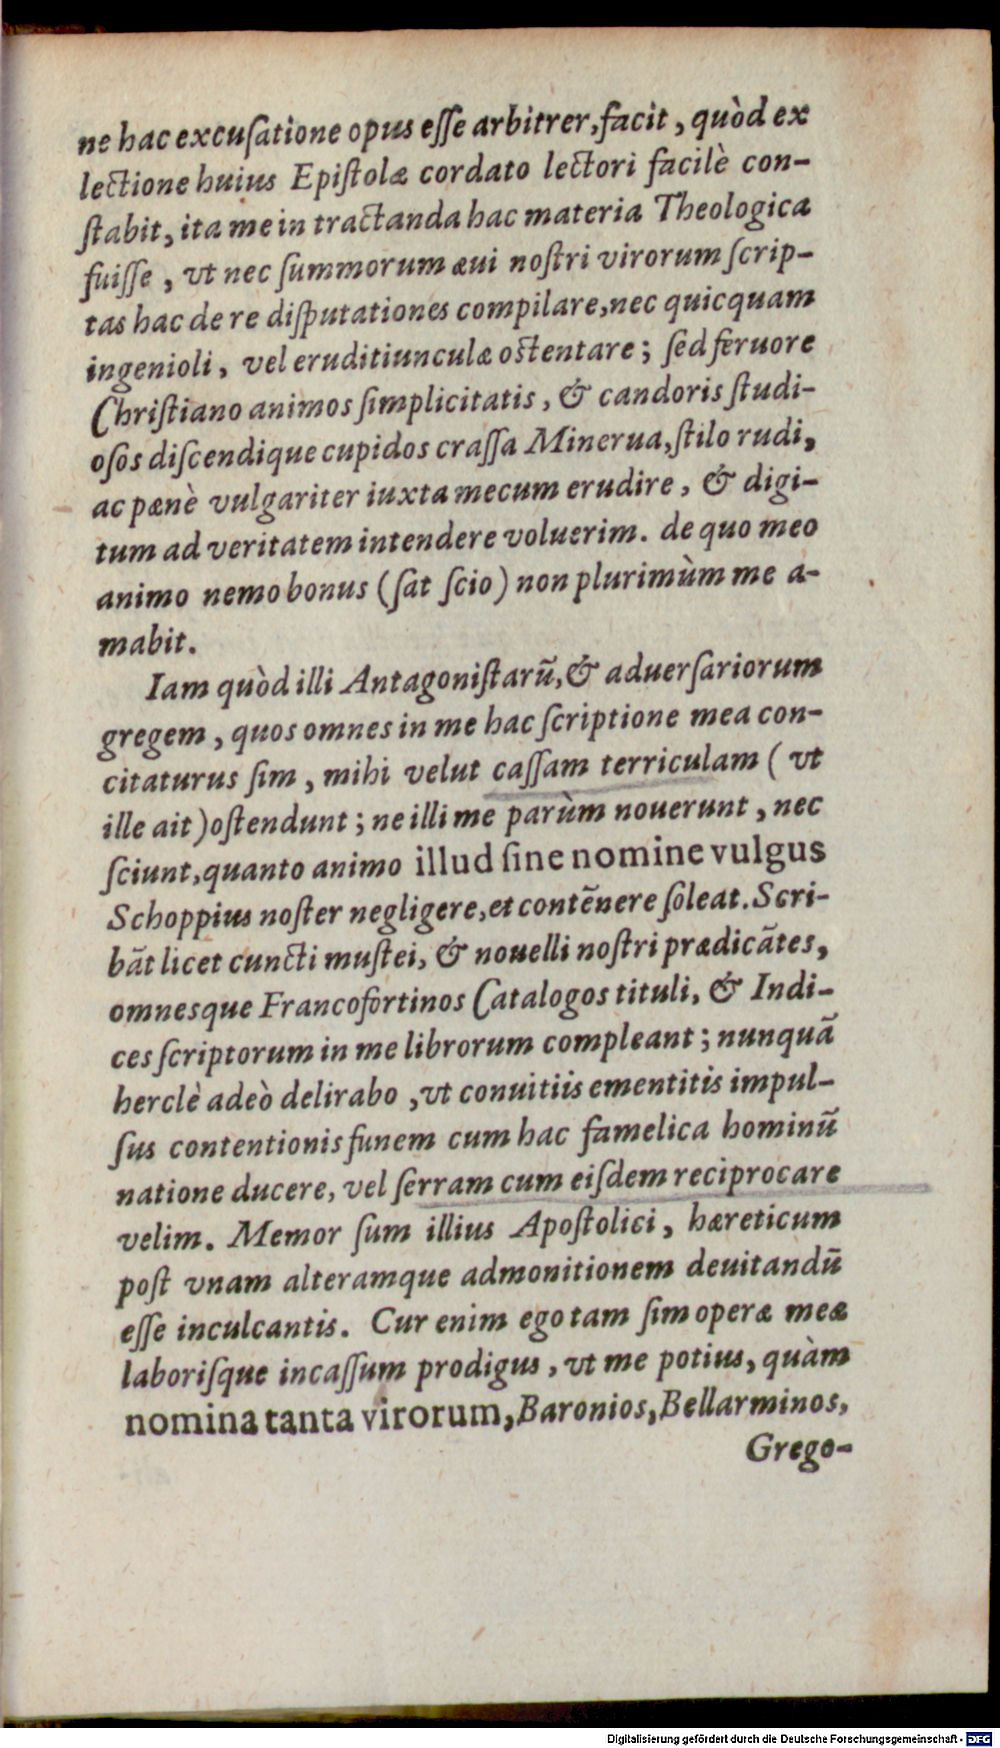 ne hac excuſatione opus eſſe arbitrer, facit, quòd ex
lectione huius Epiſtolæ cordato lectori facilè con-
ſtabit, ita me in tractanda hac materia Theologica
fuiſſe, vt nec ſummorum æui noſtri virorum ſcrip-
tas hac de re diſputationes compilare, nec quicquam
ingenioli, vel eruditiunculæ oſtentare; ſed feruore
Chriſtiano animos ſimplicitatis, & candoris ſtudi-
oſos diſcendique cupidos craſſa Minerua, ſtilo rudi,
ac pænè vulgariter iuxta mecum erudire, & digi-
tum ad veritatem intendere voluerim. de quo meo
animo nemo bonus (ſat ſcio) non plurimùm me a-
mabit.
Iam quòd illi Antagoniſtarũ, & aduerſariorum
gregem, quos omnes in me hac ſcriptione mea con-
citaturus ſim, mihi velut caſſam terriculam (vt
ille ait) oſtendunt; ne illi me parùm nouerunt, nec
ſciunt, quanto animo illud ſine nomine vulgus
Schoppius noſter negligere, et contẽnere ſoleat. Scri-
bãt licet cuncti muſtei, & nouelli noſtri prædicãtes,
omnesque Francofortinos Catalogos tituli, & Indi-
ces ſcriptorum in me librorum compleant; nunquã
herclè adeò delirabo, vt conuitiis ementitis impul-
ſus contentionis funem cum hac famelica hominũ
natione ducere, vel ſerram cum eiſdem reciprocare
velim. Memor ſum illius Apoſtolici, hæreticum
poſt vnam alteramque admonitionem deuitandũ
eſſe inculcantis. Cur enim ego tam ſim operæ meæ
laboriſque incaſſum prodigus, vt me potius, quàm
nomina tanta virorum, Baronios, Bellarminos,
Grego-
Digitalisierung gefördert durch die Deutsche Forschungsgemeinschaft - DFG